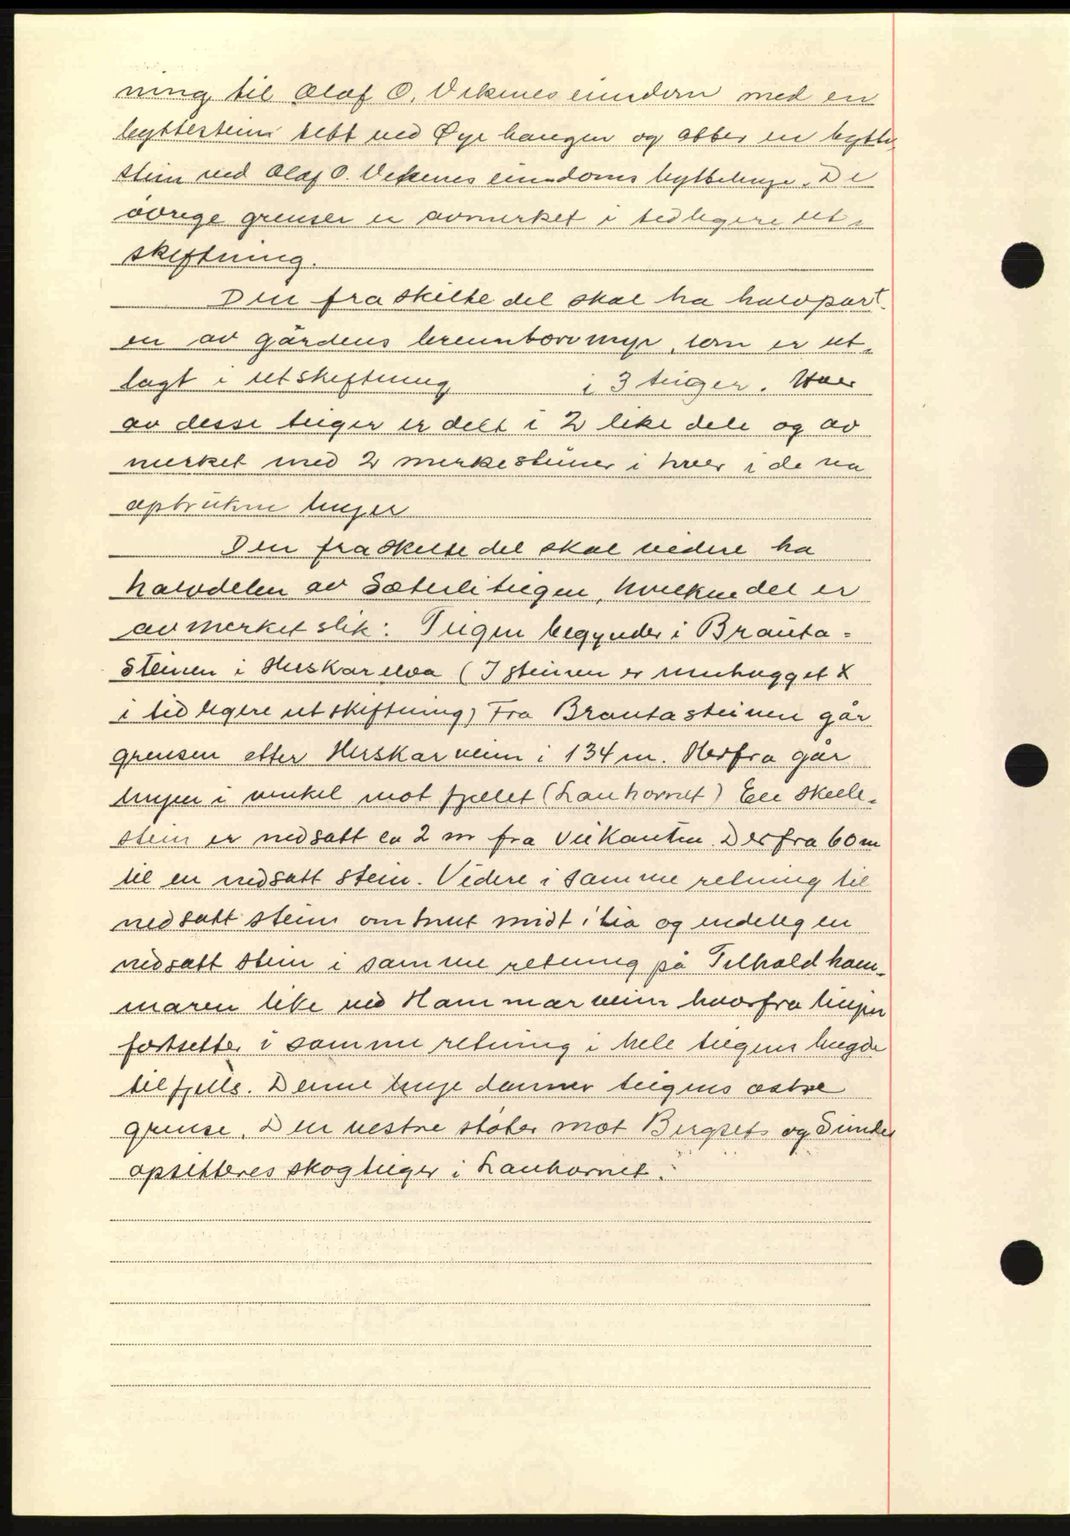 ning til Olaf O. Vikenes eiendom med en
byttestein tett ved Øyr haugen og atter en bytte
stein ved Olaf O. Vikenes eiendoms byttelinje. De
øvrige grenser er avmerket i tidligere ut-
skiftning.
Den fraskilte del skal ha halvpart-
en av gårdens brenntorvmyr, som er ut-
lagt i utskiftning i 3 teiger. Hver
av disse teiger er delt i 2 like dele og av
merket med 2 merkesteiner i hver i de na
optrukne linjer
Den fraskilte del skal videre ha
halvdelen av Sæterliteigen, hvilken del er
avmerket slik: Teigen begynder i Brauta-
steinen i Huskarelva (I steinen er innhugget X
i tidligere utskiftning) Fra Brautasteinen går
grensen etter Huskarveien i 134 m. Herfra går
linjen i vinkel mot fjellet (Lauhornet) En skille-
stein er nedsatt ca 2 m fra veikanten. Derfra 60 m
til en nedsatt stein. Videre i samme retning til
nedsatt stein omtrent midt i lia og endelig en
nedsatt stein i samme retning på Tilhaldham-
maren like ved Hammarveien hvorfra linjen
fortsetter i samme retning i hele teigens lengde
til fjells. Denne linje danner teigens østre
grense. Den vestre støter mot Bergsets og Sunde
opsitteres skogteiger i Lauhornet.